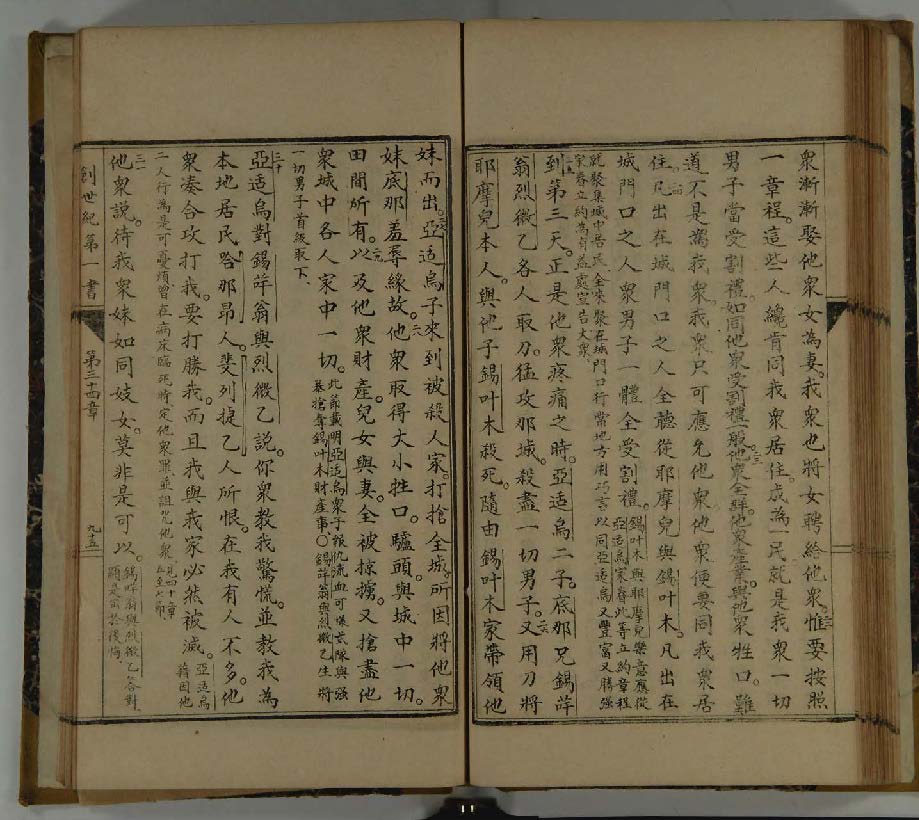 衆漸漸娶他衆女為妻。我衆也將女聘給他衆。惟要按照
一章程。這些人纔肯同我衆居住。成為一民。就是我衆一切
男子當受割禮。如同他衆受割禮一般。他衆全群。他衆產業。與他衆牲口。難
道不是為我衆。我衆只可應允他衆。他衆便要同我衆居
住。凡出在城門口之人全聽從耶摩兒與錫叶木。凡出在
城門口之人衆男子一體全受割禮。錫叶木與耶摩兒樂意應從
亞适烏家齊此等立約章程
以同亞适烏又豐富又勝强
就聚集城中居民全來聚在城門口行常地方用巧言
宗眷立約為有益處宣告大衆
到第三天。正是他衆疼痛之時。亞适烏二子。底那兄錫葊
翁烈微乙各人取刀。猛攻那城。殺盡一切男子。又用刀將
耶摩兒本人。與他子錫叶木殺死。隨由錫叶木家帶領他
妹而出。亞适烏子來到被殺人家。打搶全城。所因將他衆
妹底那羞辱緣故。他衆取得大小牲口。驢頭與城中一切。
田間所有。以及他衆財產。兒女與妻。全被掠擄。又搶盡他
衆城中各人家中一切。此節載明亞适烏衆子報仇流血可嘆貳隊與强
暴搶奪錫叶木財產事○錫葊翁與烈微乙生將
一切男子首級取下
三十
亞适烏對錫葊翁與烈微乙說。你衆教我驚慌。並教我為
本地居民哈那昂人。斐列捷乙人所恨。在我有人不多。他
衆湊合攻打我。要打勝我。而且我與我家必然被滅。亞适烏
藉因他
二人行為是可憂煩曾在病床臨死時定他衆罪並詛咒他衆見四十章
五至七節
三一
他衆說。待我衆妹如同妓女。莫非是可以。錫葊翁與烈微乙答對
顯是負咎後悔
創世紀第一書
第三十四章
九十五